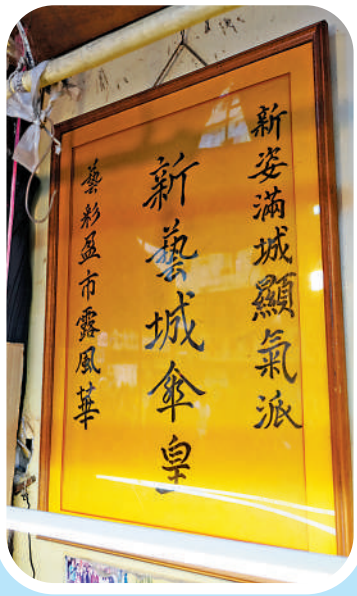 新姿滿城顯氣派
新藝城傘皇
藝彩盈市露風華